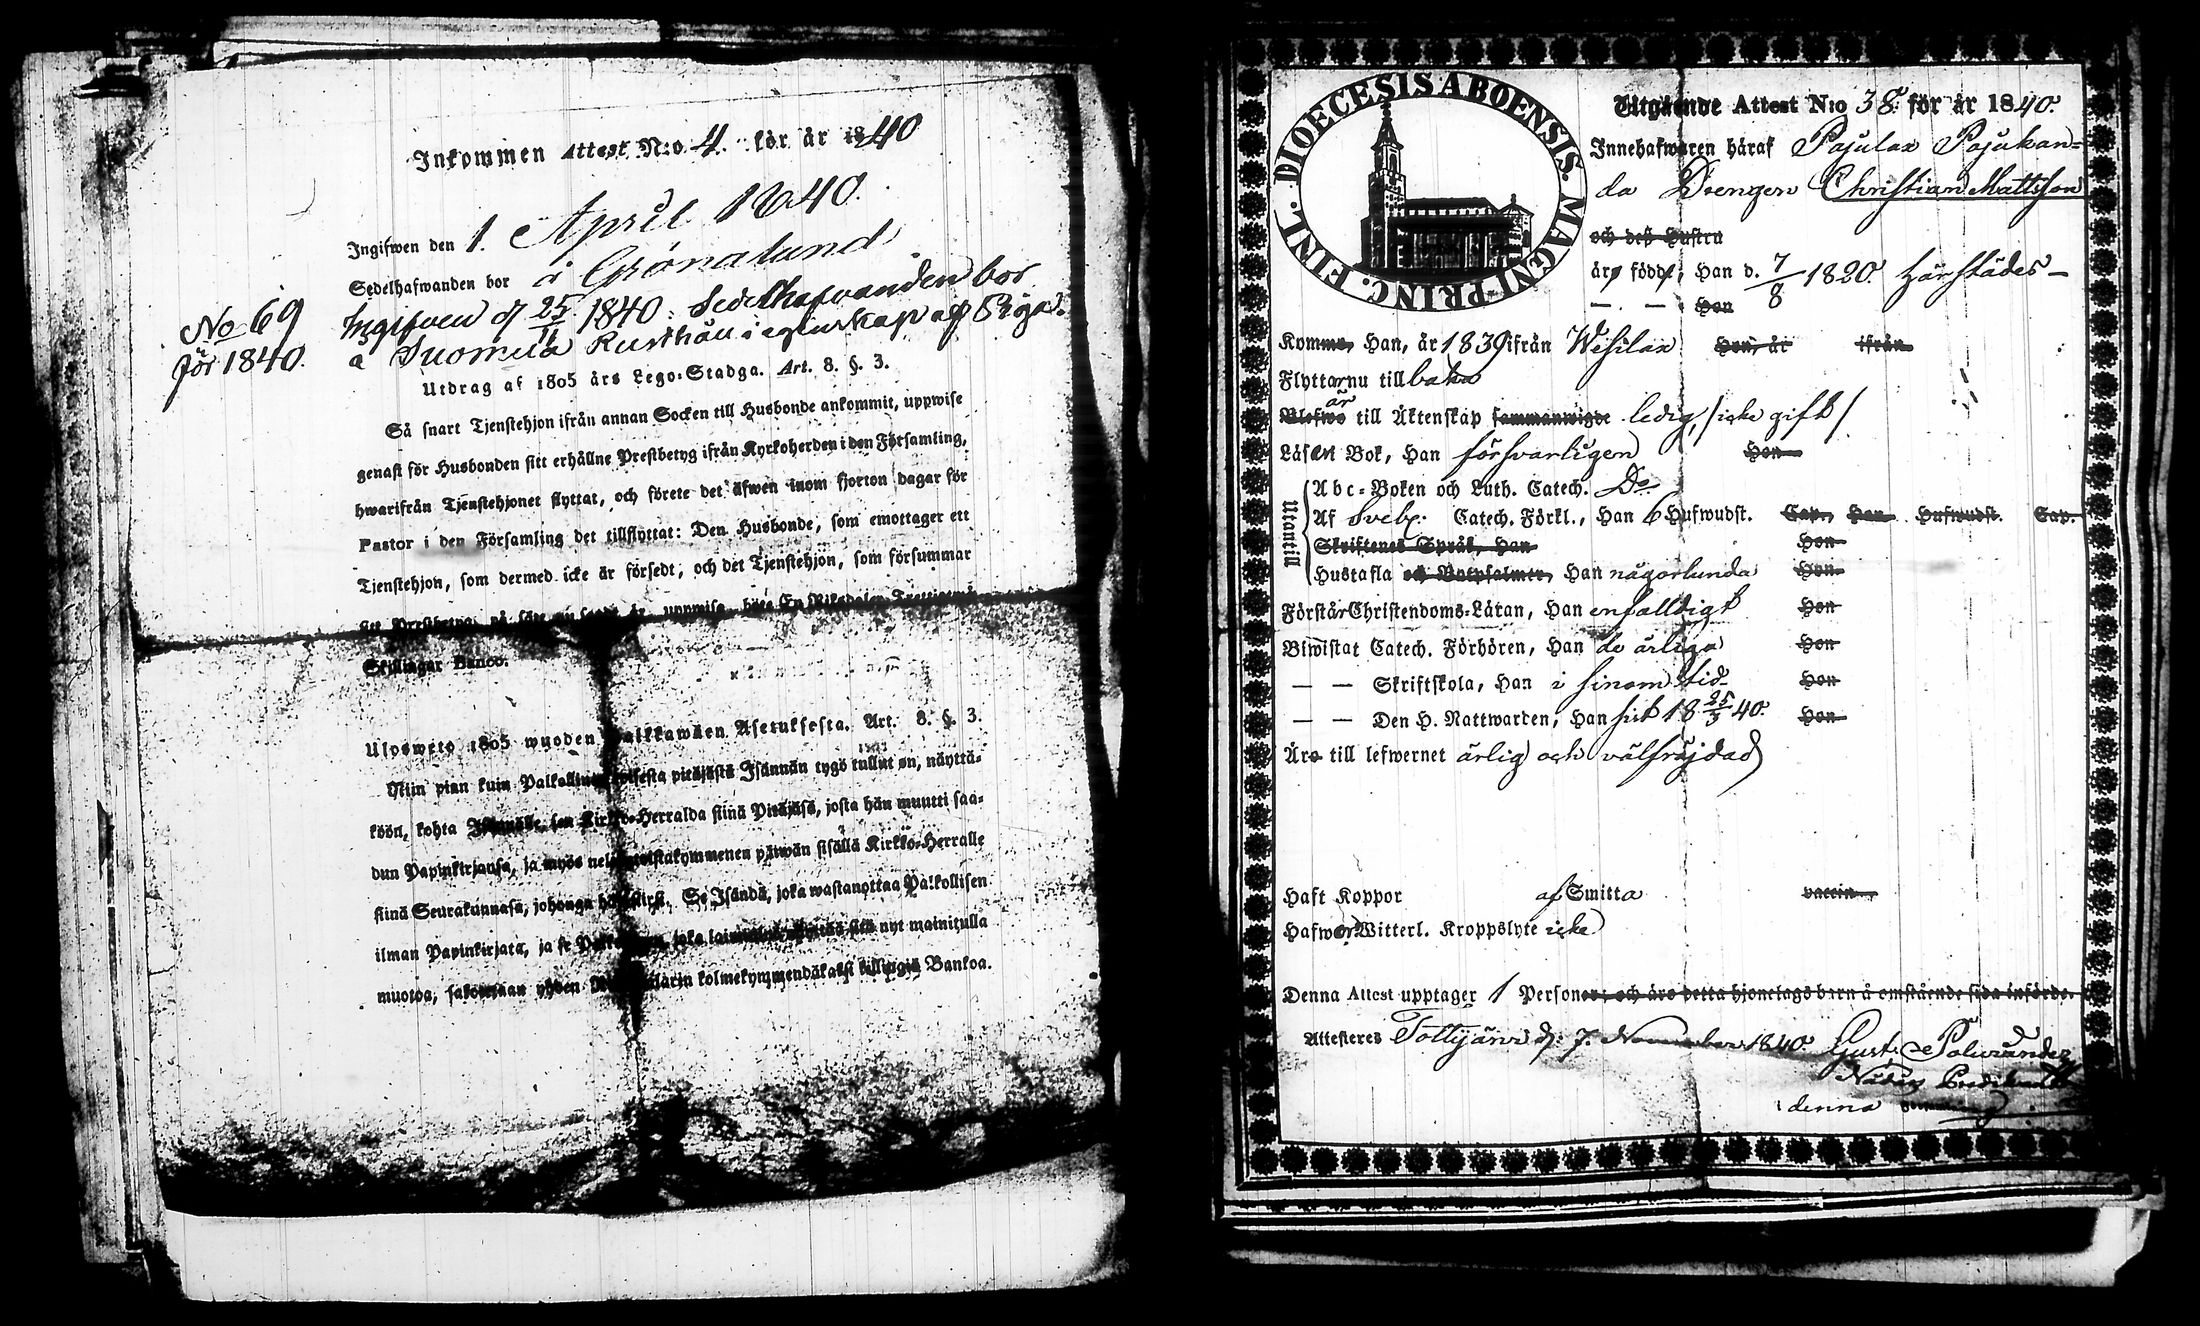 Inkommen Attest N:o 4. för år 1840
Ingifwen den 1. April 1840.
Sedelhafwanden bor å Grönalund
No 69 Ingifven d 25/11 1840. Sedelhafvanden bor
för 1840. å Suomela Rusthåll i egenskap af Piga.
Utdrag af 1805 års Lego-Stadga. Art. 8. §. 3.
Så snart Tjenstehjon ifrån annan Socken till Husbonde ankommit, uppwise
genast för Husbonden sitt erhållne Prestbetyg ifrån Kyrkoherden i den Församling,
hwarifrån Tjenstehjonet flyttat, och förete det äfwen inom fjorton dagar för
Pastor i den Församling det tillflyttat: Den Husbonde, som emottager ett
Tjenstehjon, som dermed icke är försedt, och det Tjenstehjon, som försummar
att Prestbetyg, på sätt nu sagdt är, uppwisa, böte En Riksdaler Trettiotwå
Skillingar Banco.
Ulosweto 1805 wuoden Palkkawäen Asetuksesta. Art. 8. §. 3.
Niin pian kuin Palkollinen toisesta pitäjästä Isännän tygö tullut on, näyttä-
köön, kohta Isännälle, sen Kirkko-Herralda siinä Pitäjäsä, josta hän muutti saa-
dun Papinkirjansa, ja myös neljäntoistakymmenen päiwän sisällä Kirkko-Herralle
siinä Seurakunnasa, johonga hän siirsi. Se Isändä, joka wastanottaa Palkollisen
ilman Papinkirjata, ja se Palkollinen, joka laiminlyö sitä nyt mainitulla
muotoa, sakotetaan yhden Riksdalarin kolmekymmendäkaksi killingiä Bankoa.
DIOECESIS ABOENSIS. MAGNI PRINC. FINL.
Utgående Attest N:o 38. för år 1840.
Innehafwaren häraf Pajulax Pajukan-
da Drengen Christian Mattsson
och dess Hustru
är född, Han d. 7/8 1820. härstädes
— — Hon
Kommo, Han, år 1839 ifrån Wesilax Hon, år ifrån
Flyttar nu till baka
är
Blefwo till Äktenskap sammanwigde ledig, /icke gift/
Läser i Bok, Han försvarligen Hon
Utantill
Abc-Boken och Luth. Catech. Do
Af Svebe. Catech. Förkl., Han 6 Hufwudst. Cap., Hon Hufwudst. Cap.
Skriftenes Språk, Han Hon
Hustafla och Botpsalmer, Han någorlunda Hon
Förstår Christendoms-Läran, Han enfalldigt Hon
Biwistat Catech. Förhören, Han de årliga Hon
— — Skriftskola, Han i sinom tid Hon
— — Den H. Nattwarden, Han sist 18 25/3 40. Hon
Äro till lefwernet ärlig och välfräjdad
Haft Koppor af Smitta vaccin.
Hafwer Witterl. Kroppslyte icke
Denna Attest upptager 1 Personer; och äro detta hjonelags barn å omstående sida införde.
Attesteres Tottijärvi d. 7. November 1840. Gust. Polviander
denna